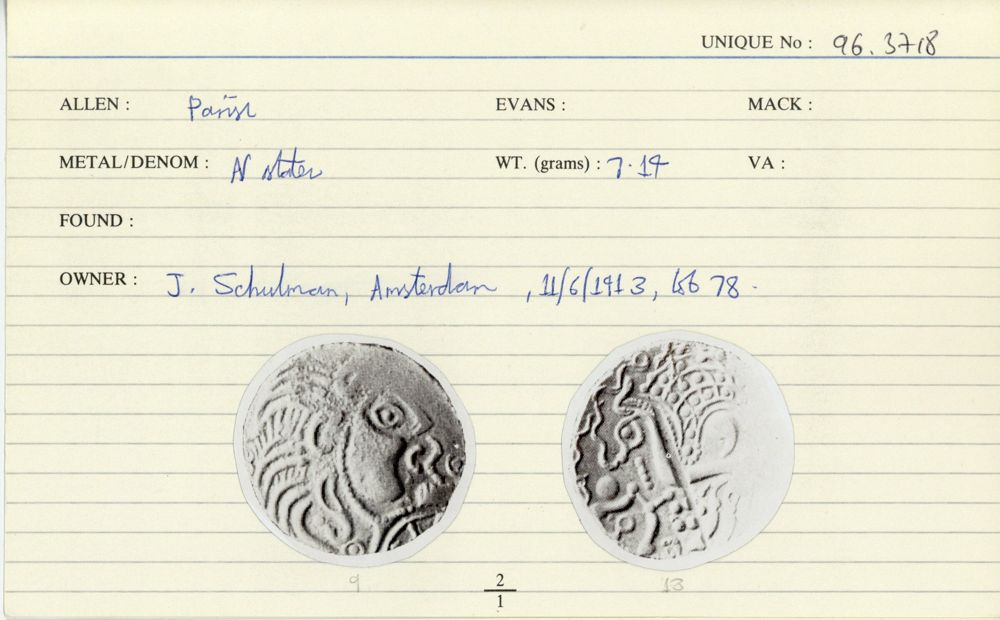 UNIQUE No : 96.3718
ALLEN : Parisi EVANS : MACK :
METAL/DENOM : N stater WT. (grams) : 7.14 VA :
FOUND :
OWNER : J. Schulman, Amsterdam, 11/6/1913, lot 78.
9 2/1 13